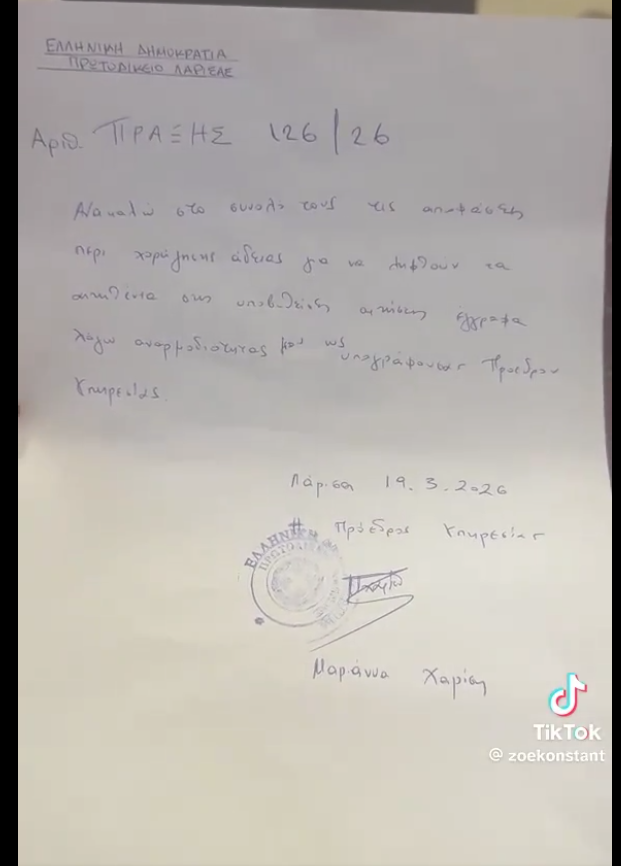 ΕΛΛΗΝΙΚΗ ΔΗΜΟΚΡΑΤΙΑ
ΠΡΩΤΟΔΙΚΕΙΟ ΛΑΡΙΣΑΣ
Αριθ. ΠΡΑΞΗΣ 126/26
Ανακαλώ στο σύνολό τους τις αποφάσεις
περί χορήγησης άδειας για να ληφθούν τα
αιτηθέντα στις υποβληθείσες αιτήσεις έγγραφα
λόγω αναρμοδιότητας μου ως υπογράφουσας Προέδρου
Υπηρεσίας
Λάρισα 19.3.2026
Πρόεδρος Υπηρεσίας
ΕΛΛΗΝΙΚΗ
ΠΡΩΤΟΔΙΚΕΙΟ
Μαριάννα Χαρίση
TikTok
@zoekonstant